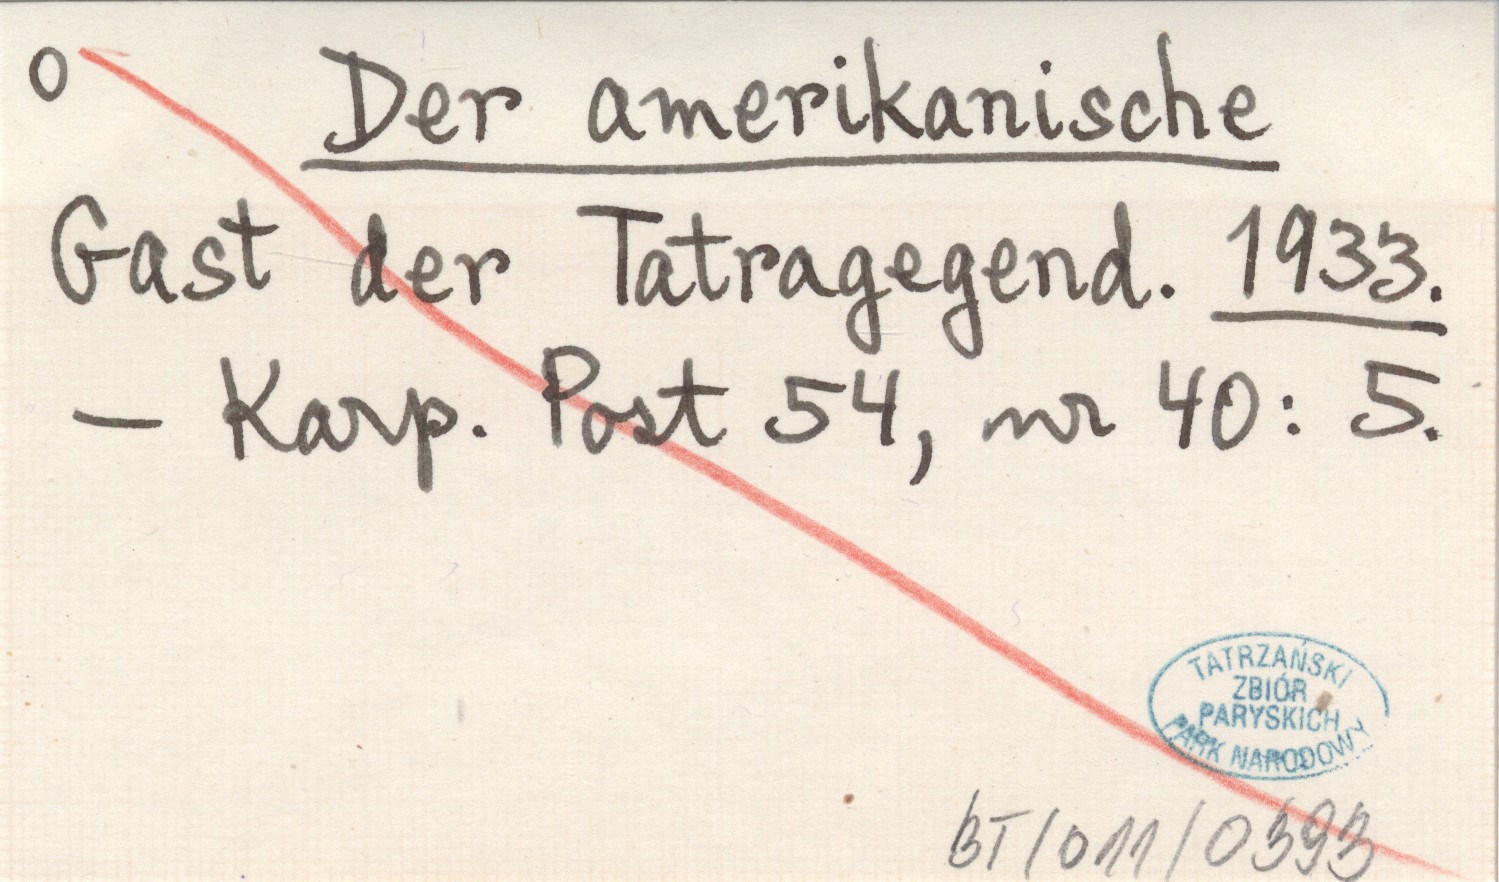 O Der amerikanische
Gast der Tatragegend. 1933.
— Karp. Post 54, nr 40: 5.
TATRZAŃSKI
ZBIÓR
PARYSKICH
PARK NARODOWY
BT/011/0393